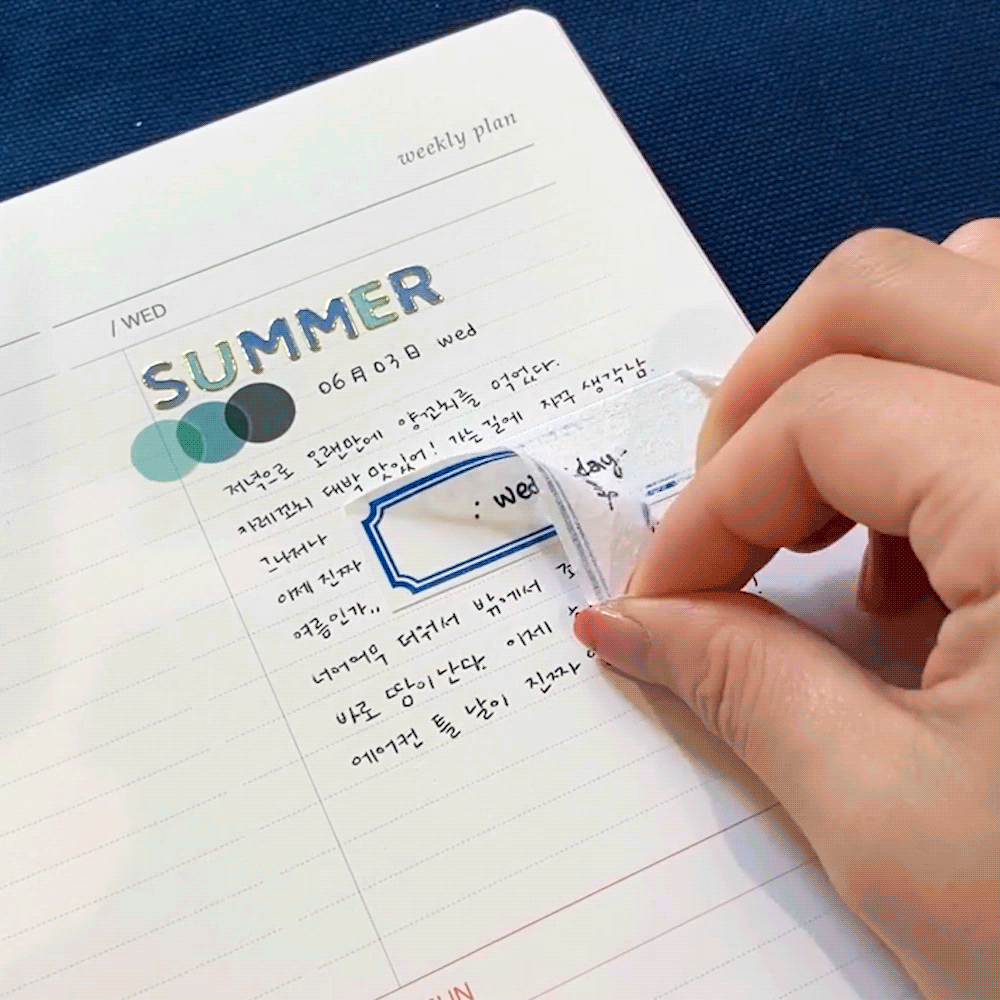 weekly plan
/ WED
SUMMER
06月 03日 wed
저녁으로 오랜만에 양꼬치를 먹었다.
차례꼬치 대박 맛있어! 가는 길에 자꾸 생각남.
: wed day
그나저나
이제 진짜
여름인가,,
너어어무 더워서 밖에서 조
바로 땀이 난다. 이제
에어컨 틀 날이 진짜
SUN